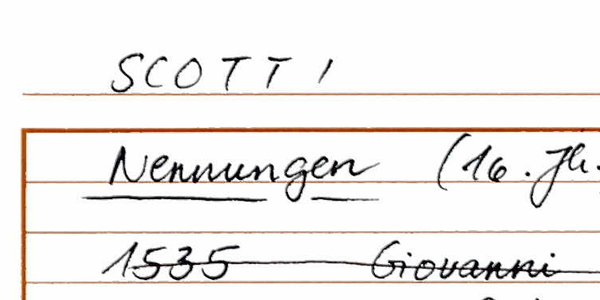 SCOTTI
Nennungen (16. Jh.
1535 Giovanni